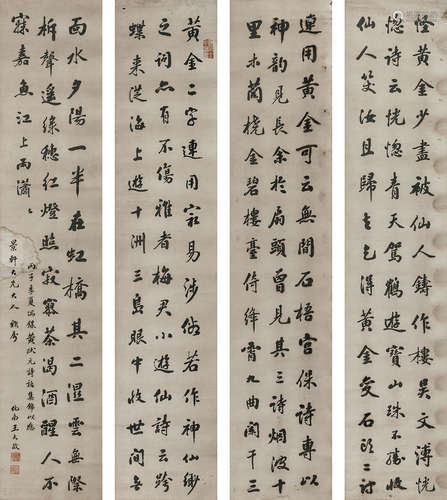 怪黄金少盡被仙人鑄作樓吴文溥恍
惚詩云恍惚青天駕鶴遊寶山珠不勝收
仙人笑汝且歸去已得黄金變石頭二詩
連用黄金可云無間石梧宫保詩專以
神韻見長余於扇頭曾見其三詩烟波十
里木蘭橈金碧樓臺倚絳霄九曲闌干三
黄金二字連用最易涉俗若作神仙緲
之詞亦有不傷雅者梅君小遊仙詩云跨
蝶来從海上遊十洲三島眼中收世間无
面水夕陽一半在虹橋其二濕雲無際
柝聲遥綠穗红燈照寂寥茶渴酒醒人不
寐嘉魚江上雨瀟々
丙子季夏偶錄黄狀元詩話集錦以應
景軒大兄大人雅屬